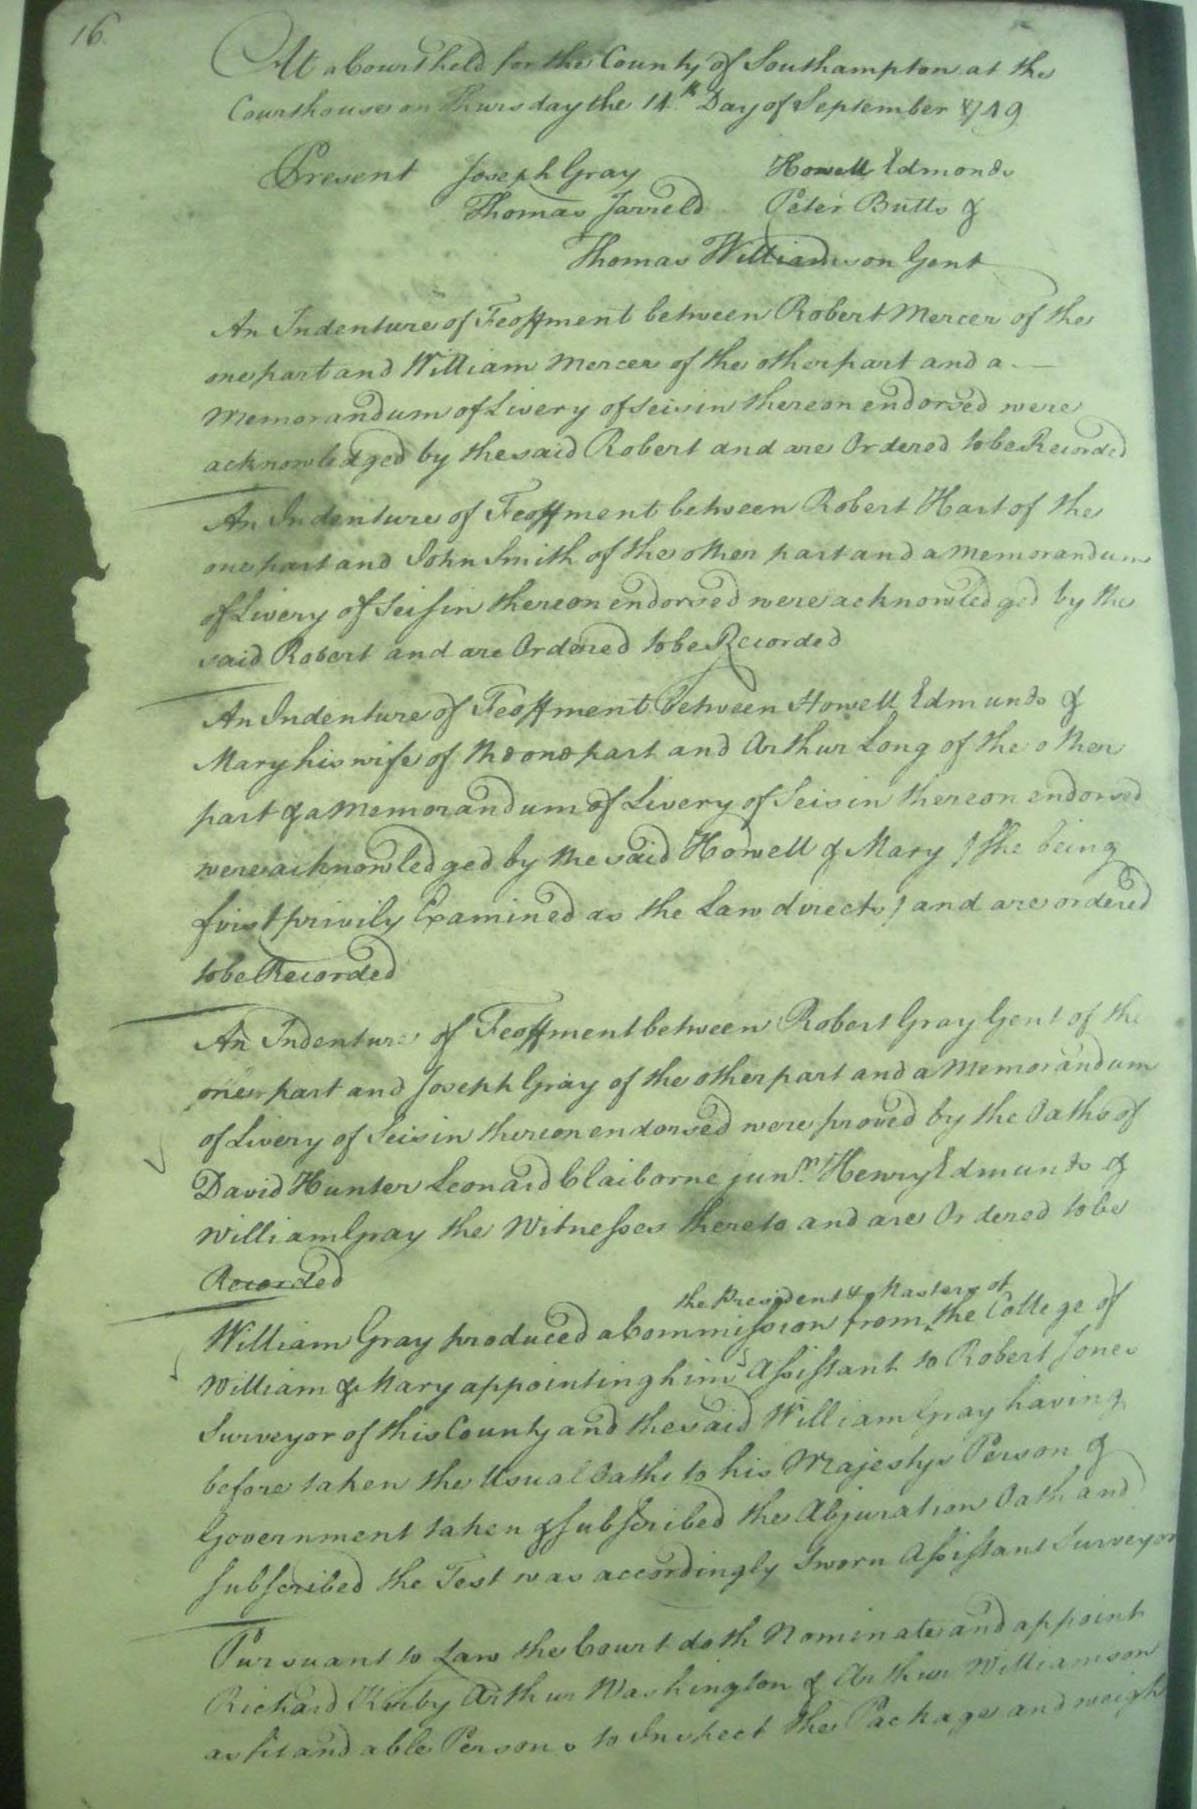 16.
At a Court held for the County of Southampton at the
Courthouse on Thursday the 14.th Day of September 1749
Present Joseph Gray Howell Edmonds
Thomas Jarreld Peter Butts &
Thomas Williamson Gent
An Indenture of Feoffment between Robert Mercer of the
one part and William Mercer of the other part and a —
Memorandum of Livery of Seisin thereon endorsed were
acknowledged by the said Robert and are Ordered to be Recorded
An Indenture of Feoffment between Robert Hart of the
one part and John Smith of the other part and a Memorandum
of Livery of Seisin thereon endorsed were acknowledged by the
said Robert and are Ordered to be Recorded
An Indenture of Feoffment between Howell Edmunds &
Mary his wife of the one part and Arthur Long of the other
part & a Memorandum of Livery of Seisin thereon endorsed
were acknowledged by the said Howell & Mary /She being
first privily Examined as the Law directs/ and are ordered
to be Recorded
An Indenture of Feoffment between Robert Gray Gent of the
one part and Joseph Gray of the other part and a Memorandum
of Livery of Seisin thereon endorsed were proved by the Oaths of
David Hunter Leonard Claiborne junr. Henry Edmunds &
William Gray the Witnesses thereto and are Ordered to be
Recorded
the President & Masters of
William Gray produced a Commission from the College of
William & Mary appointing him Assistant to Robert Jones
Surveyor of this County and the said William Gray having
before taken the Usual Oaths to his Majestys Person &
Government taken & subscribed the Abjuration Oath and
subscribed the Test was accordingly sworn Assistant Surveyor
Pursuant to Law the Court doth Nominate and appoint
Richard Kirby Arthur Washington & Arthur Williamson
as fit and able Persons to Inspect the Package and weigh